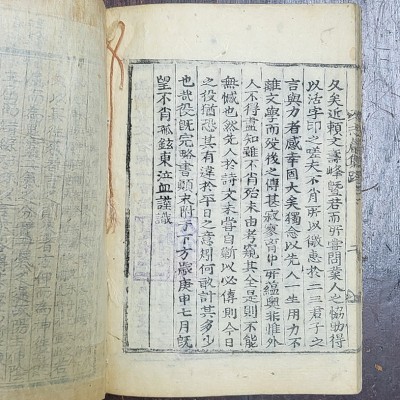 久矣近賴文壽峰曁君而所嘗問業人之恊助得
以活字印之嗟夫不肖所以徼惠於二三君子之
言與力者感幸固大矣獨念以先人一生用力不
離文學而歿後之傳甚寂寥胷中所蘊奧非惟外
人不得盡知雖不肖殆未由考窺其全是則不能
無憾也然先人於詩文未嘗自斷以必傳則今日
之役猶恐其有違於平日之意則何敢計其多少
也哉役旣完略書顚末附于下方歲庚申七月旣
望不肖孤鉉東泣血謹識